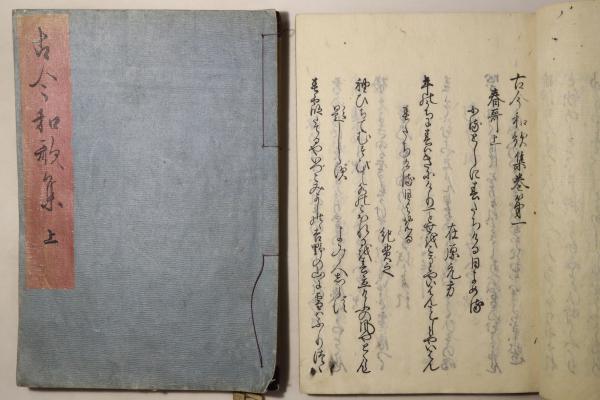 古今和歌集 上
古今和歌集巻第一
春哥上
ふるとしに春たちける日よめる
在原元方
年の内に春はきにけり一とせをこそとやいはんことしとやいはん
春たちける日よめる
紀貫之
袖ひちてむすひし水のこほれるを春立けふの風やとくらん
題しらす よみ人しらす
春霞たてるやいつこみよしのの吉野の山に雪はふりつゝ